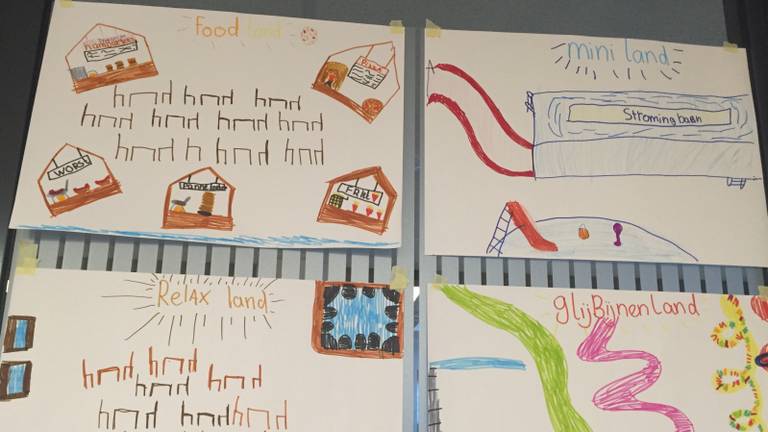 Food land
WORST
FRIET
mini land
Stromingbaan
Relax land
glijBijnenLand